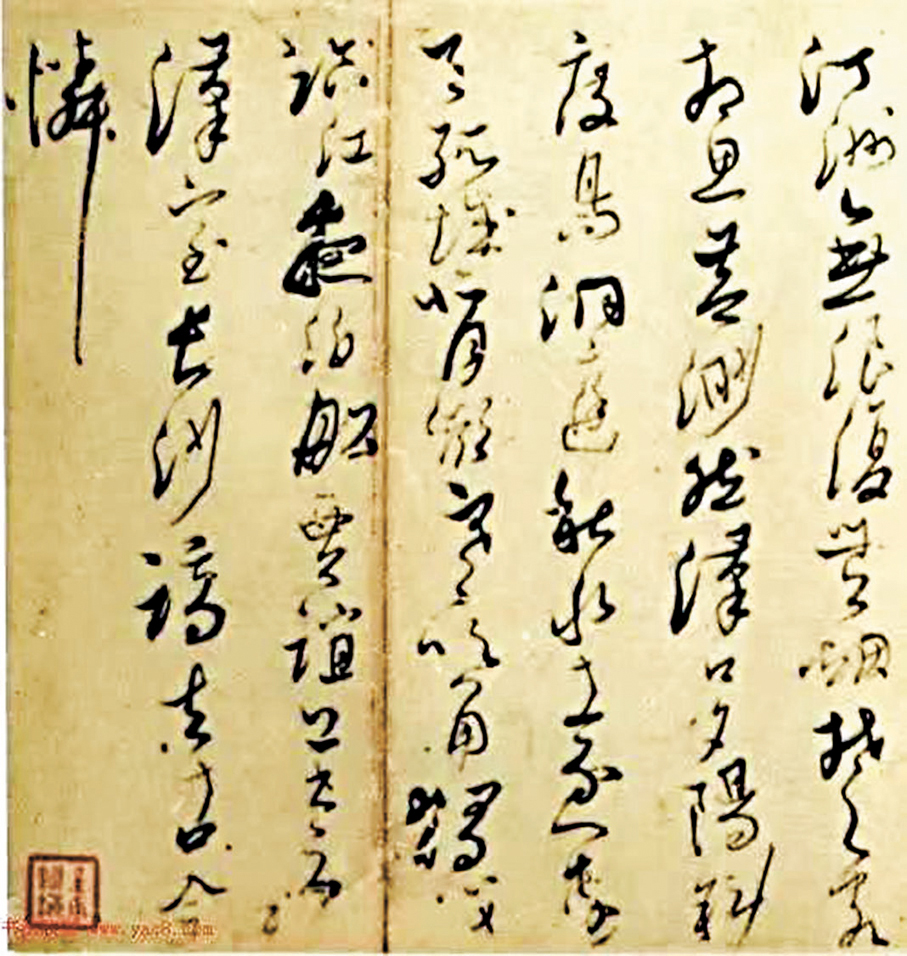 汀洲無浪復無烟楚客
相思益渺然漢口夕陽斜
度鳥洞庭秋水遠連
天孤城背嶺寒吹角獨戍
臨江夜泊船賈誼上書憂
漢室長沙謫去古今
憐
www.yac8.com